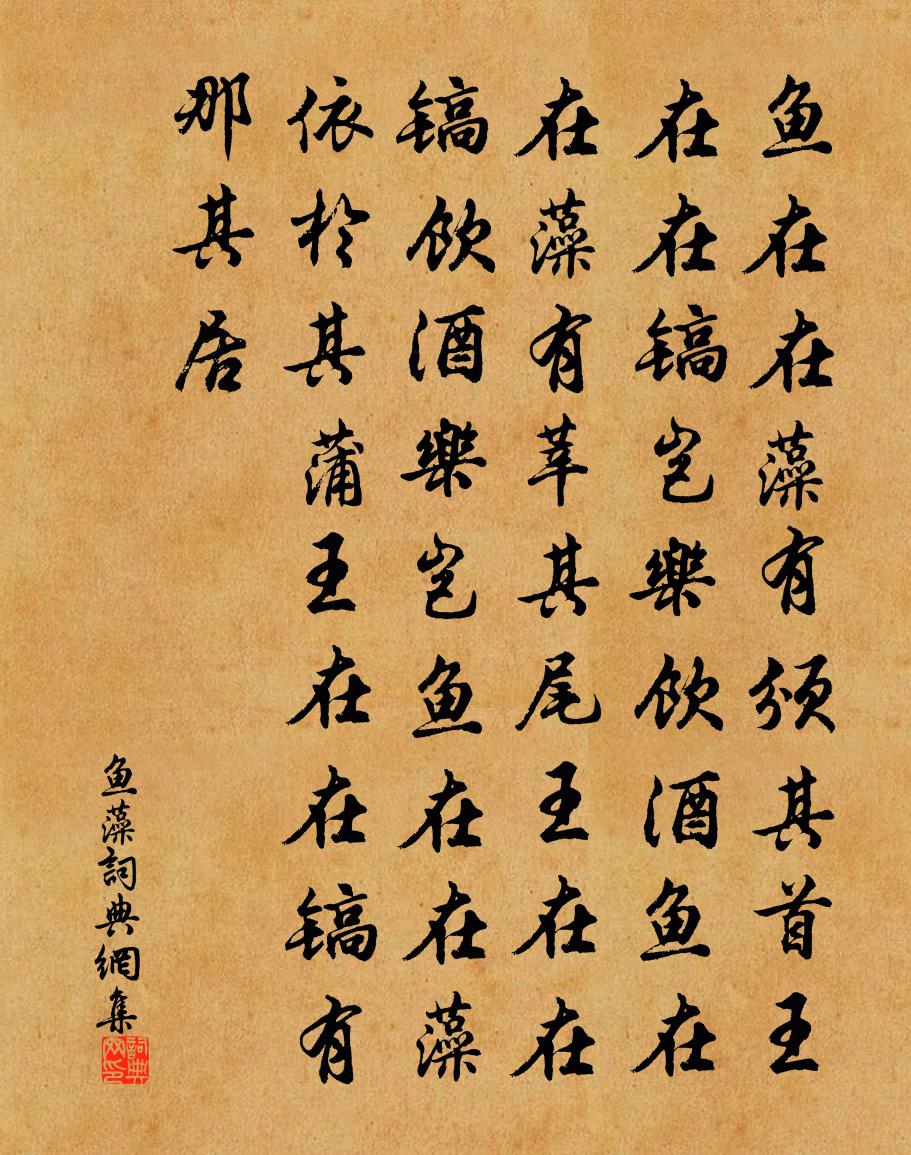 鱼在在藻有颁其首王
在在镐岂樂饮酒鱼在
在藻有莘其尾王在在
镐饮酒樂岂鱼在在藻
依於其蒲王在在镐有
那其居
鱼藻詞典網集
詞典
网印